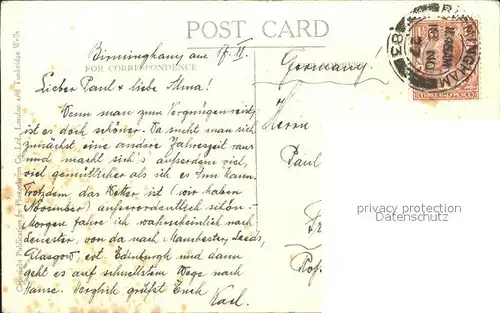 POST CARD
FOR CORRESPONDENCE
Birminghany am 17. II.
Lieber Paul & liebe Ilma!
Wenn man zum Vergnügen reist,
ist es doch schöner. Da sucht man sich
zunächst eine andere Jahreszeit raus
und macht sich's ausserdem viel,
viel gemütlicher als ich es tun kann.
Trotzdem das Wetter ist (wir haben
November) ausserordentlich schön.-
Morgen fahre ich wahrscheinlich nach
Leicester, von da nach Manchester, Leeds,
Glasgow, evt. Edinburgh und dann
geht es auf schnellstem Wege nach
Hause. Herzlich grüsst Euch
Karl.
Germany.
Herrn
Paul
privacy protection
Datenschutz
BIRMINGHAM
83
THREE HALF PENCE
Co. Ltd., London and Tunbridge Wells